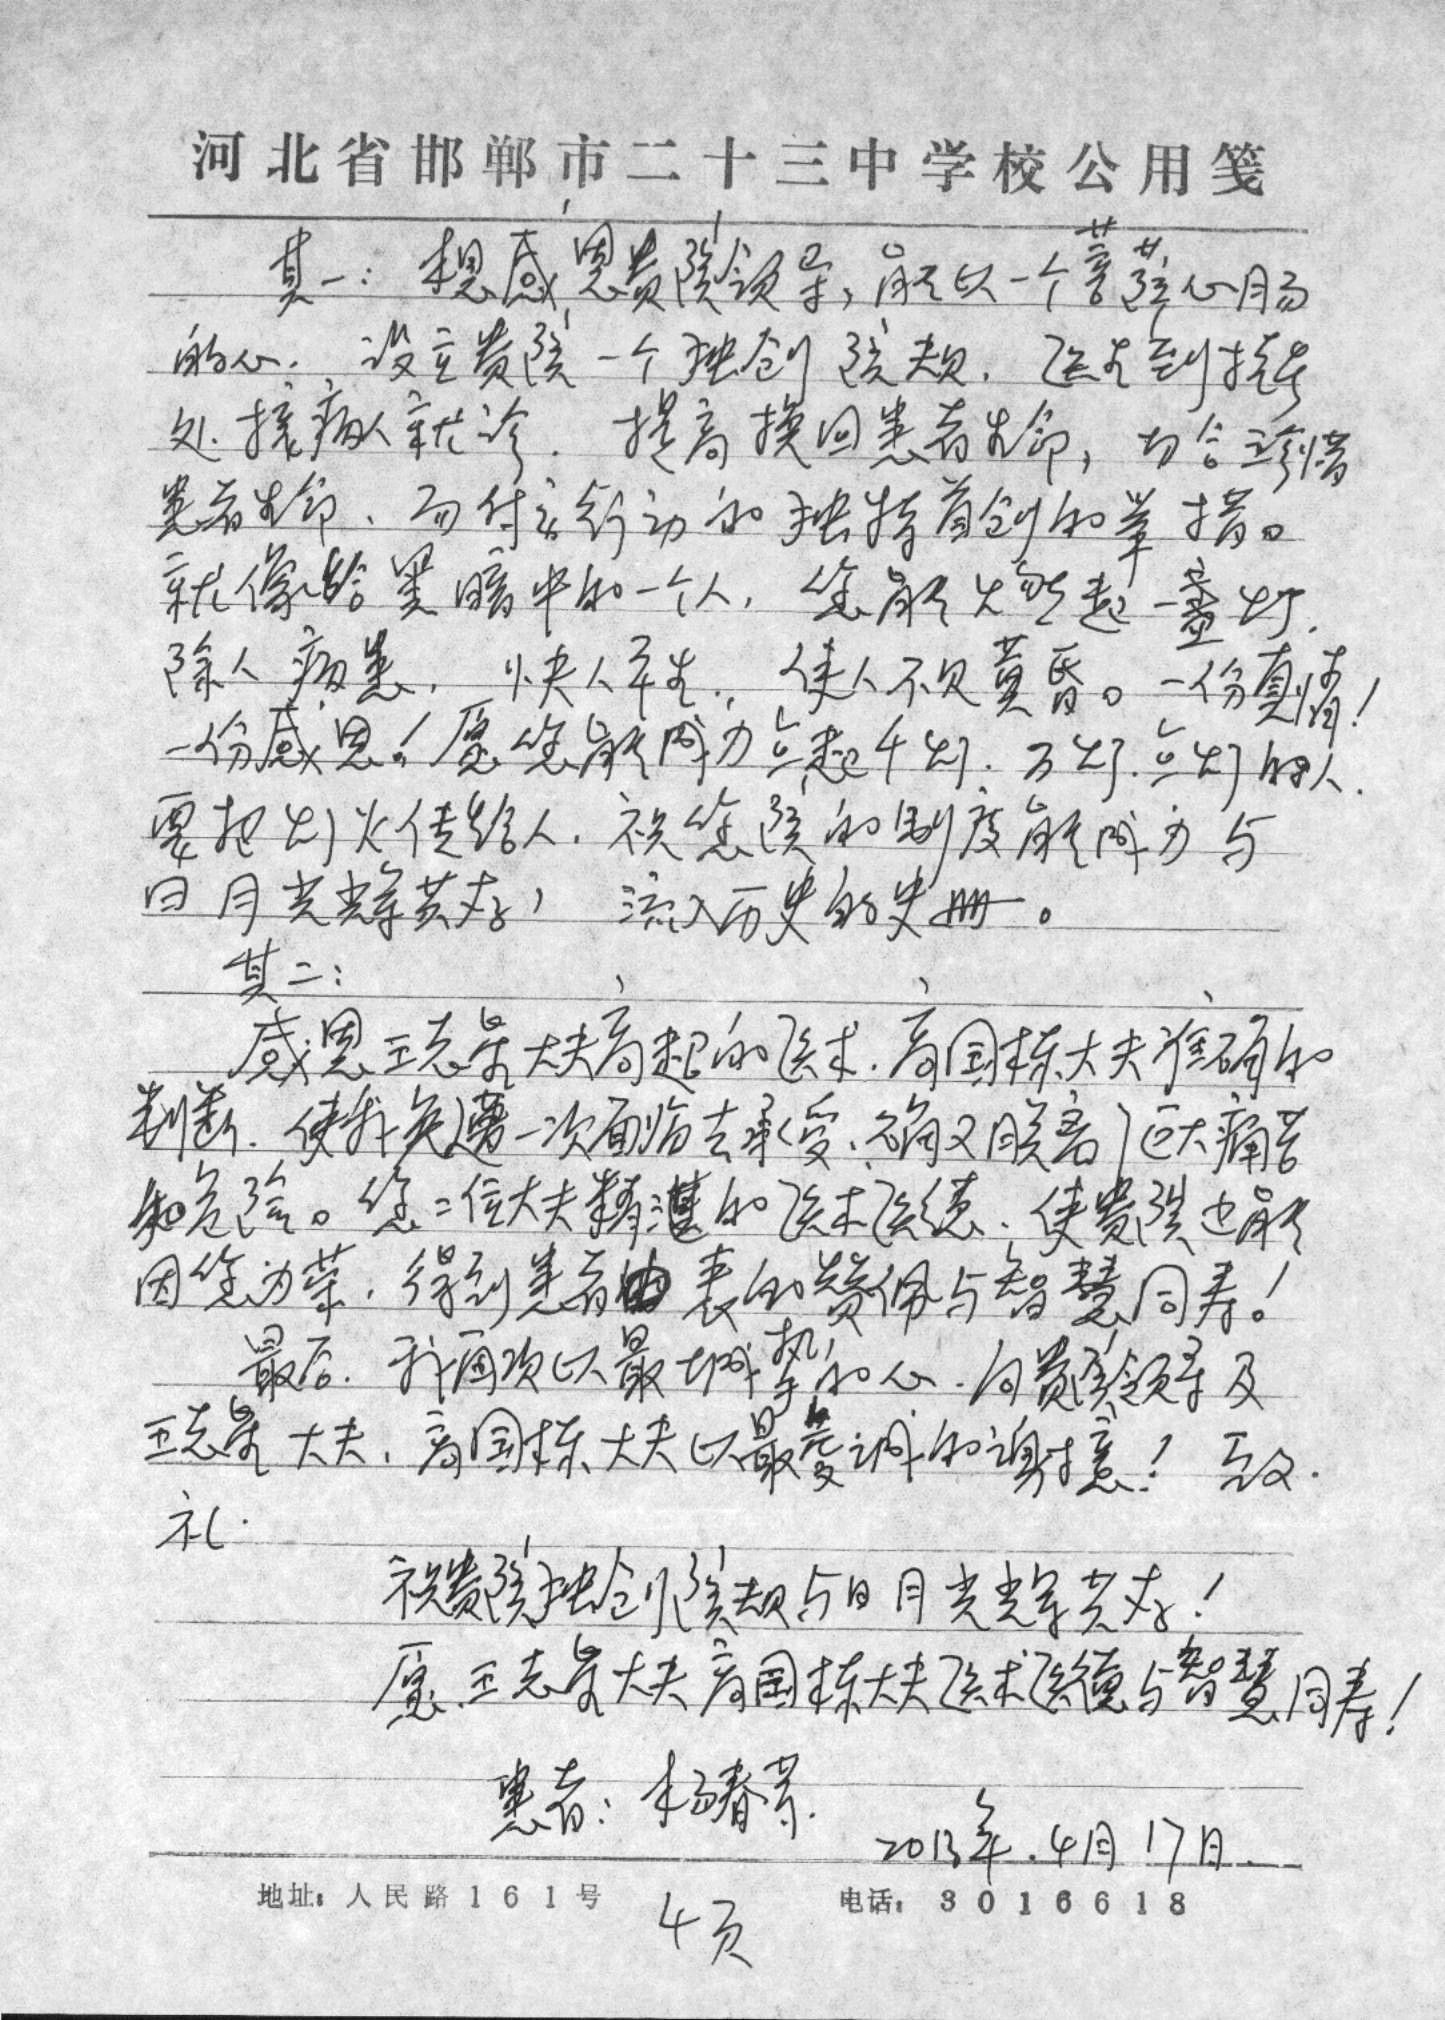 河北省邯郸市二十三中学校公用笺
其一：想感恩贵院领导，能以一个菩萨心肠
的心．设立贵院一个独创院规．医生到挂号
处．接病人就诊．提高换回患者生命，切合珍惜
患者生命、而付之行动的独特首创的举措。
就像给黑暗中的一个人，您能火然起一盏灯．
除人病患，快人平生．，使人不见黄昏。一份真情！
一份感恩！愿您能成为立起千灯．万灯．立灯的人．
要把灯火传给人．祝您院的制度能成为与
日月光辉共存，流入历史的史册。
其二：
感恩王志军大夫高超的医术．高国栋大夫准确的
判断．使我免遭一次面临去承受、而又胁着巨大痛苦
和危险。您二位大夫精湛的医术医德、使贵院也能
因您为荣．得到患者由衷的赞佩与智慧同寿！
最后．我再次以最城挚的心．向贵院领导及
王志军大夫．高国栋大夫以最虔诚的谢意！致．
礼．
祝贵院独创院规与日月光辉共存！
愿王志军大夫高国栋大夫医术医德与智慧同寿！
患者：杨春芳．
2013年．4月17日．
地址：人民路161号
电话：3016618
4页